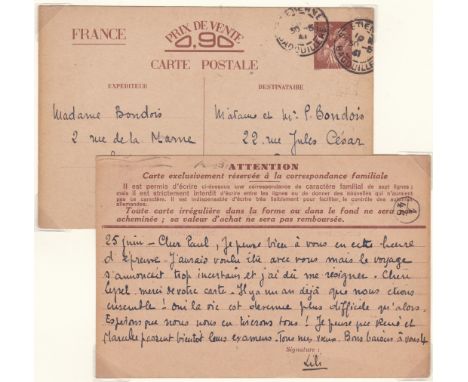 FRANCE
PRIX DE VENTE
0,90
CARTE POSTALE
EXPÉDITEUR
DESTINATAIRE
Madame Bondois
Madame et Mr P. Bondois
2 rue de la Marne
22 rue Jules César
ATTENTION
Carte exclusivement réservée à la correspondance familiale
Il est permis d'écrire ci-dessous une correspondance de caractère familial de sept lignes ;
mais il est strictement interdit d'écrire entre les lignes ou de donner des nouvelles qui n'auraient
pas ce caractère. Il est indispensable d'écrire très lisiblement pour faciliter le contrôle des autorités
allemandes.
Toute carte irrégulière dans la forme ou dans le fond ne sera
acheminée ; sa valeur d'achat ne sera pas remboursée.
25 juin — Cher Paul, Je pense bien à vous en cette heure
d'épreuve. J'aurais voulu être avec vous mais le voyage
s'annonçait trop incertain et j'ai dû me résigner. Chère
merci de votre carte. Il y a un an déjà que nous étions
ensemble ! oui la vie est devenue plus difficile qu'alors.
Espérons que nous nous en tirerons tous ! Je pense que René et
passent bientôt leurs examens. Bons baisers à vous 4
Signature :
Lili